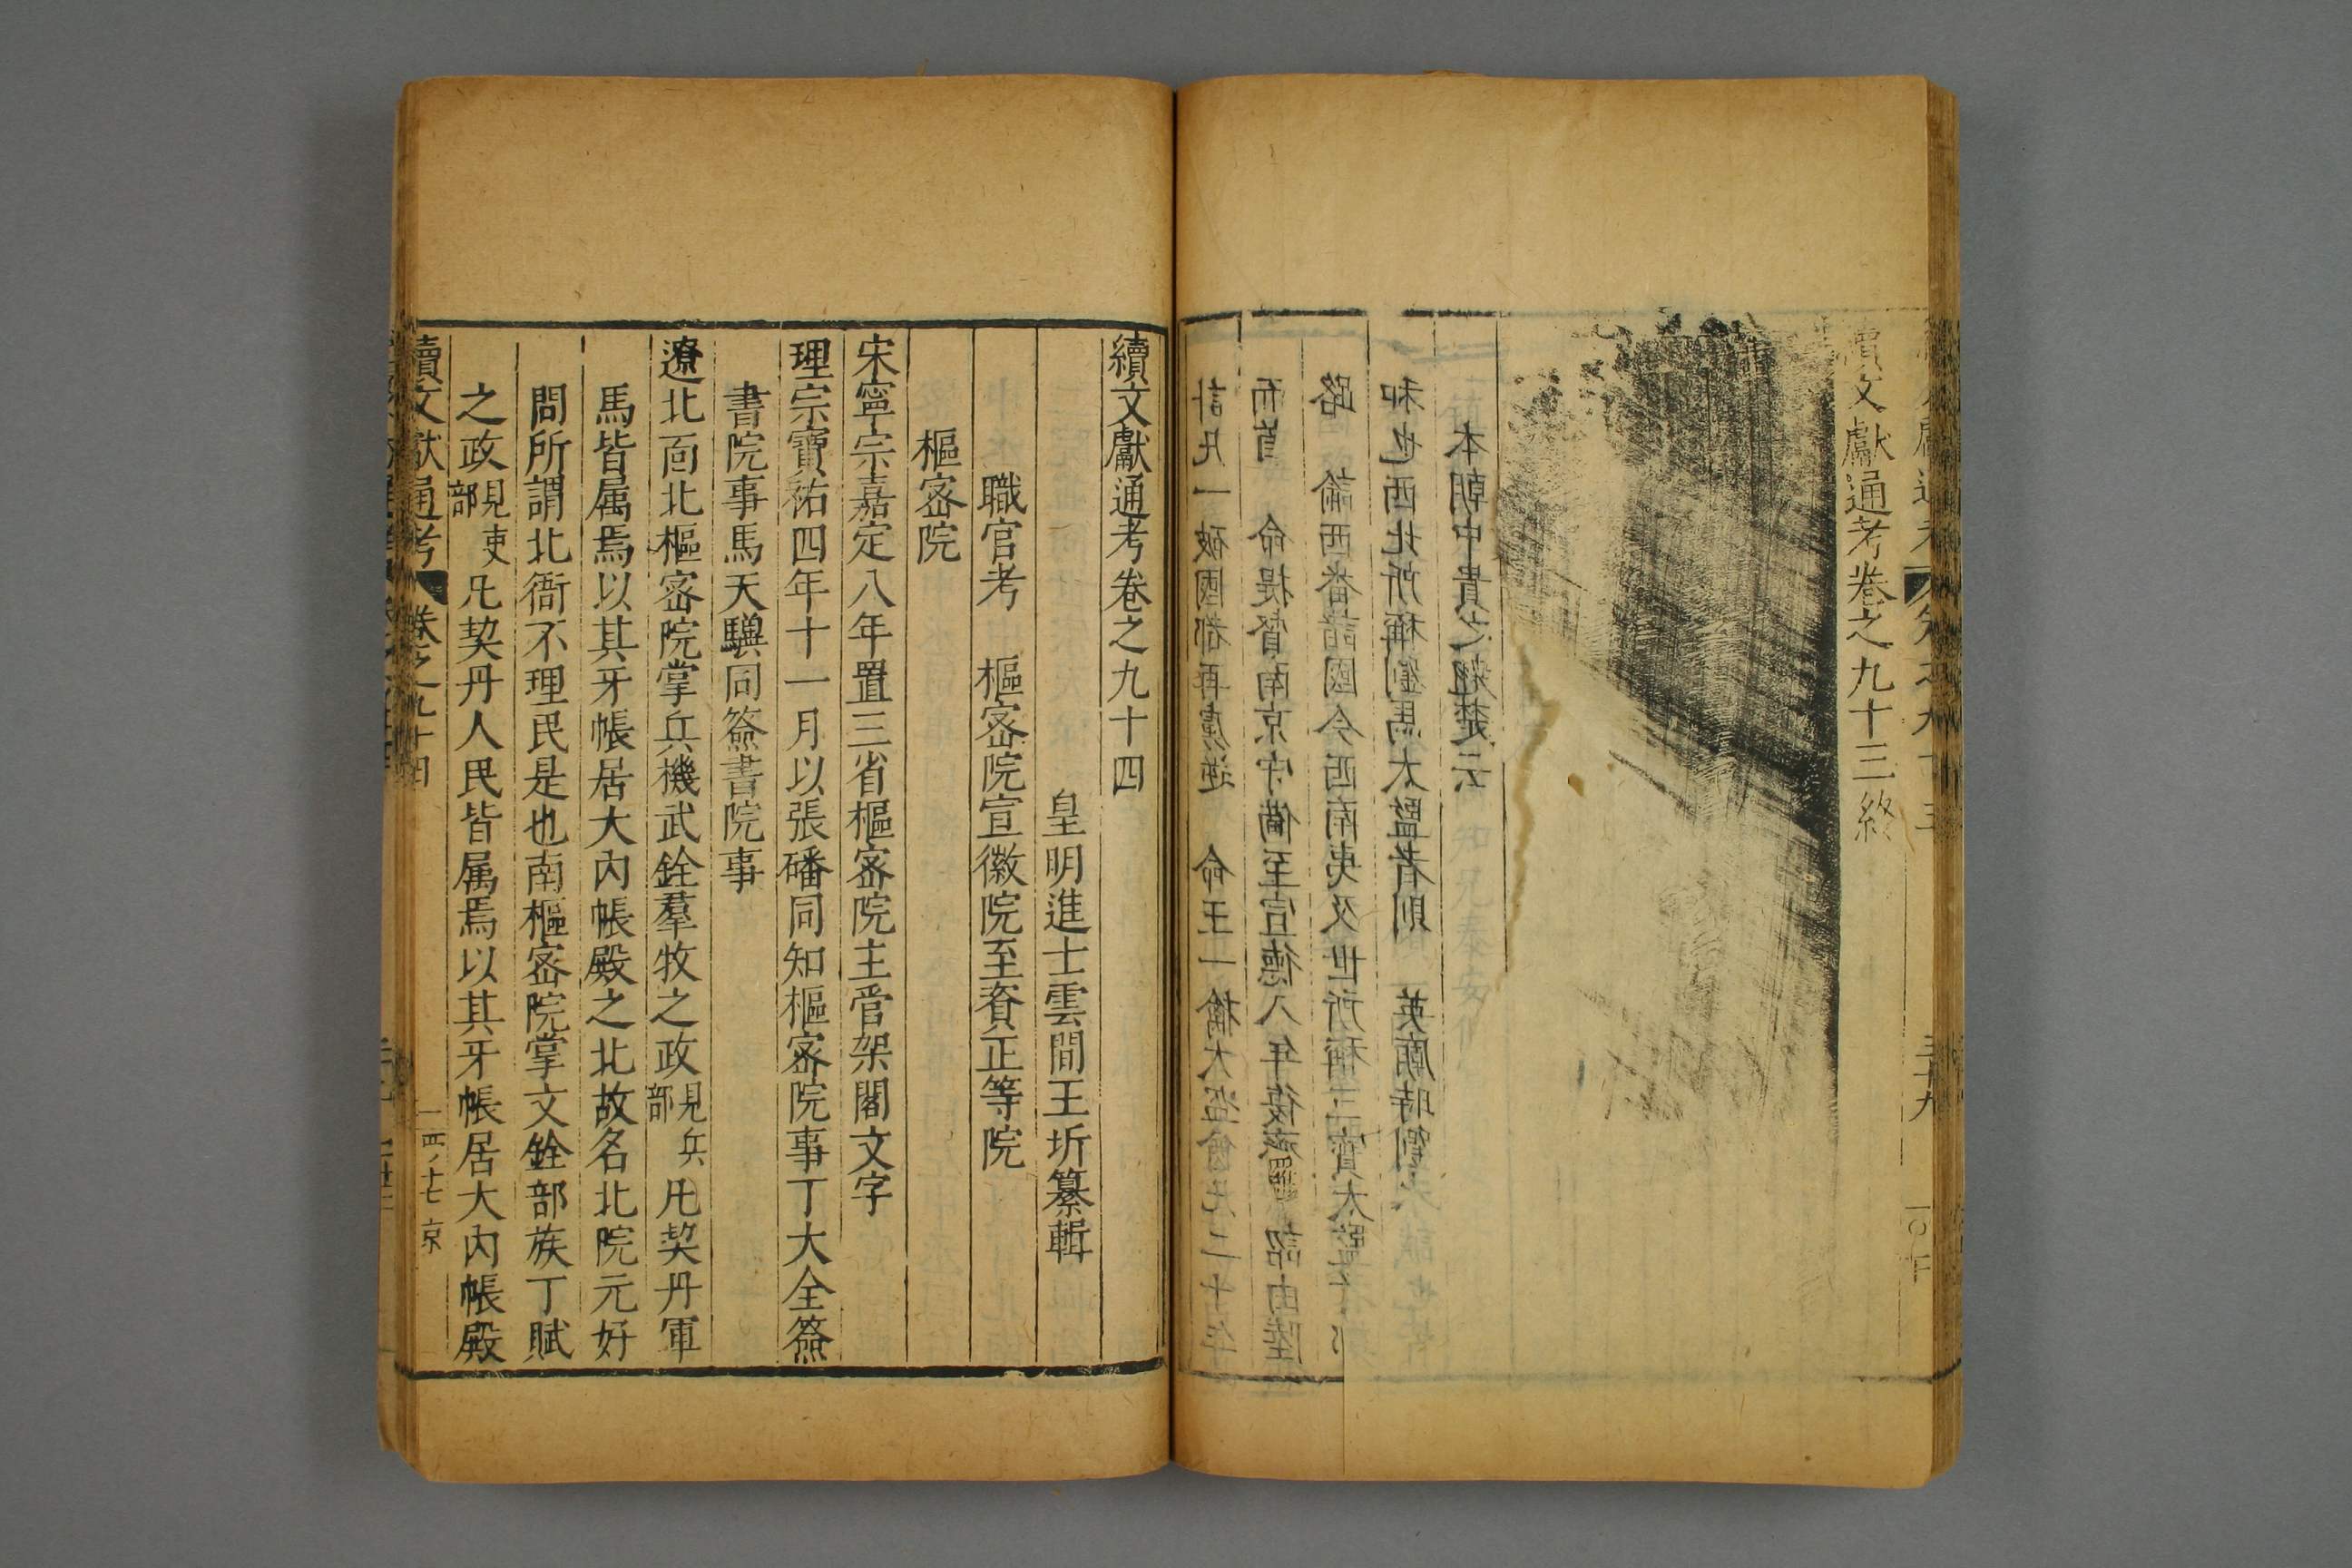 續文獻通考卷之九十三終
三十九
本朝中貴之翹楚云
和也西北所稱劉馬太監者則 英廟時劉
路 諭西番諸國今西南夷及世所稱三寶太監
而首 命提督南京守備至宣德八年復 詔由陸
計凡一破國都再虜逆 命王一擒大盜 凡二十年
續文獻通考卷之九十四
皇明進士雲間王圻纂輯
職官考 樞密院宣徽院至資正等院
樞密院
宋寧宗嘉定八年置三省樞密院主管架閣文字
理宗寶祐四年十一月以張磻同知樞密院事丁大全簽
書院事馬天驥同簽書院事
遼北面北樞密院掌兵機武銓羣牧之政見兵部凡契丹軍
馬皆属焉以其牙帳居大內帳殿之北故名北院元好
問所謂北衙不理民是也南樞密院掌文銓部族丁賦
之政見吏部凡契丹人民皆属焉以其牙帳居大內帳殿
續文獻通考 卷之九十四 一